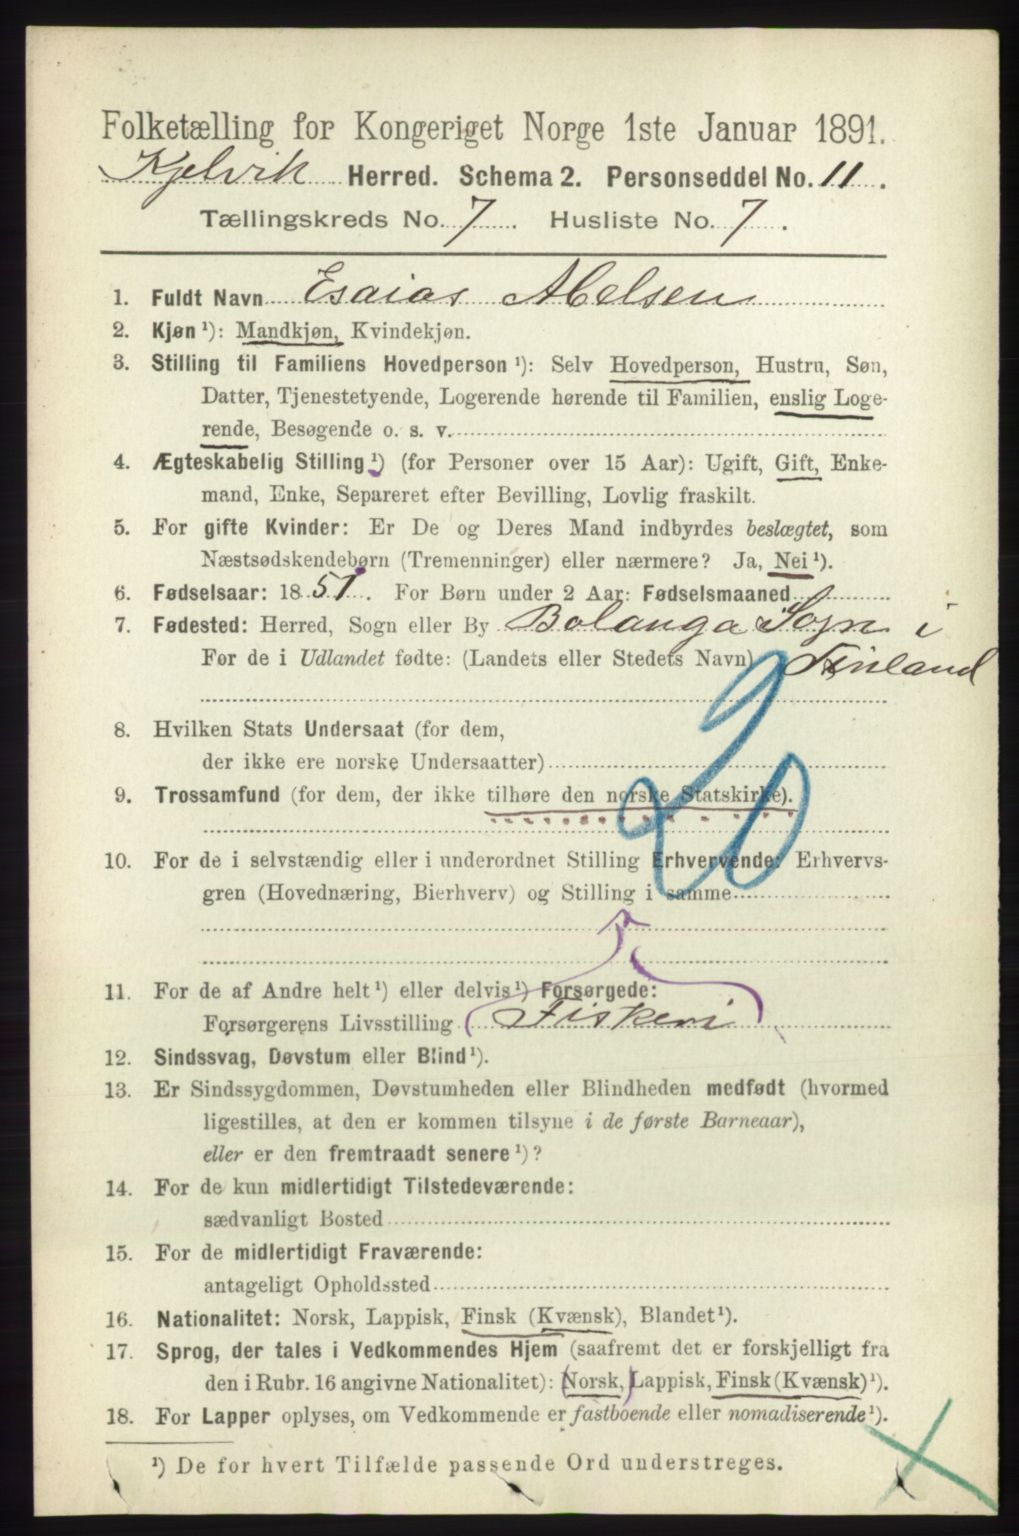 Folketælling for Kongeriget Norge 1ste Januar 1891.
Kjelvik Herred. Schema 2. Personseddel No. 11.
Tællingskreds No. 7. Husliste No. 7.
1. Fuldt Navn Esaias Abelsen
2. Kjøn ¹): Mandkjøn, Kvindekjøn.
3. Stilling til Familiens Hovedperson ¹): Selv Hovedperson, Hustru, Søn,
Datter, Tjenestetyende, Logerende hørende til Familien, enslig Loge-
rende, Besøgende o. s. v.
4. Ægteskabelig Stilling ¹) (for Personer over 15 Aar): Ugift, Gift, Enke-
mand, Enke, Separeret efter Bevilling, Lovlig fraskilt.
5. For gifte Kvinder: Er De og Deres Mand indbyrdes beslægtet, som
Næstsødskendebørn (Tremenninger) eller nærmere? Ja, Nei ¹).
6. Fødselsaar: 1851. For Børn under 2 Aar: Fødselsmaaned
7. Fødested: Herred, Sogn eller By Bolanga Sogn i
Før de i Udlandet fødte: (Landets eller Stedets Navn) Finland
8. Hvilken Stats Undersaat (for dem,
der ikke ere norske Undersaatter)
9. Trossamfund (for dem, der ikke tilhøre den norske Statskirke).
20
10. For de i selvstændig eller i underordnet Stilling Erhvervende: Erhvervs-
gren (Hovednæring, Bierhverv) og Stilling i samme
11. For de af Andre helt ¹) eller delvis ¹) Forsørgede:
Forsørgerens Livsstilling Fiskeri
12. Sindssvag, Døvstum eller Blind ¹).
13. Er Sindssygdommen, Døvstumheden eller Blindheden medfødt (hvormed
ligestilles, at den er kommen tilsyne i de første Barneaar),
eller er den fremtraadt senere ¹)?
14. For de kun midlertidigt Tilstedeværende:
sædvanligt Bosted
15. For de midlertidigt Fraværende:
antageligt Opholdssted
16. Nationalitet: Norsk, Lappisk, Finsk (Kvænsk), Blandet ¹).
17. Sprog, der tales i Vedkommendes Hjem (saafremt det er forskjelligt fra
den i Rubr. 16 angivne Nationalitet): (Norsk,) Lappisk, Finsk (Kvænsk) ¹).
18. For Lapper oplyses, om Vedkommende er fastboende eller nomadiserende ¹).
¹) De for hvert Tilfælde passende Ord understreges.